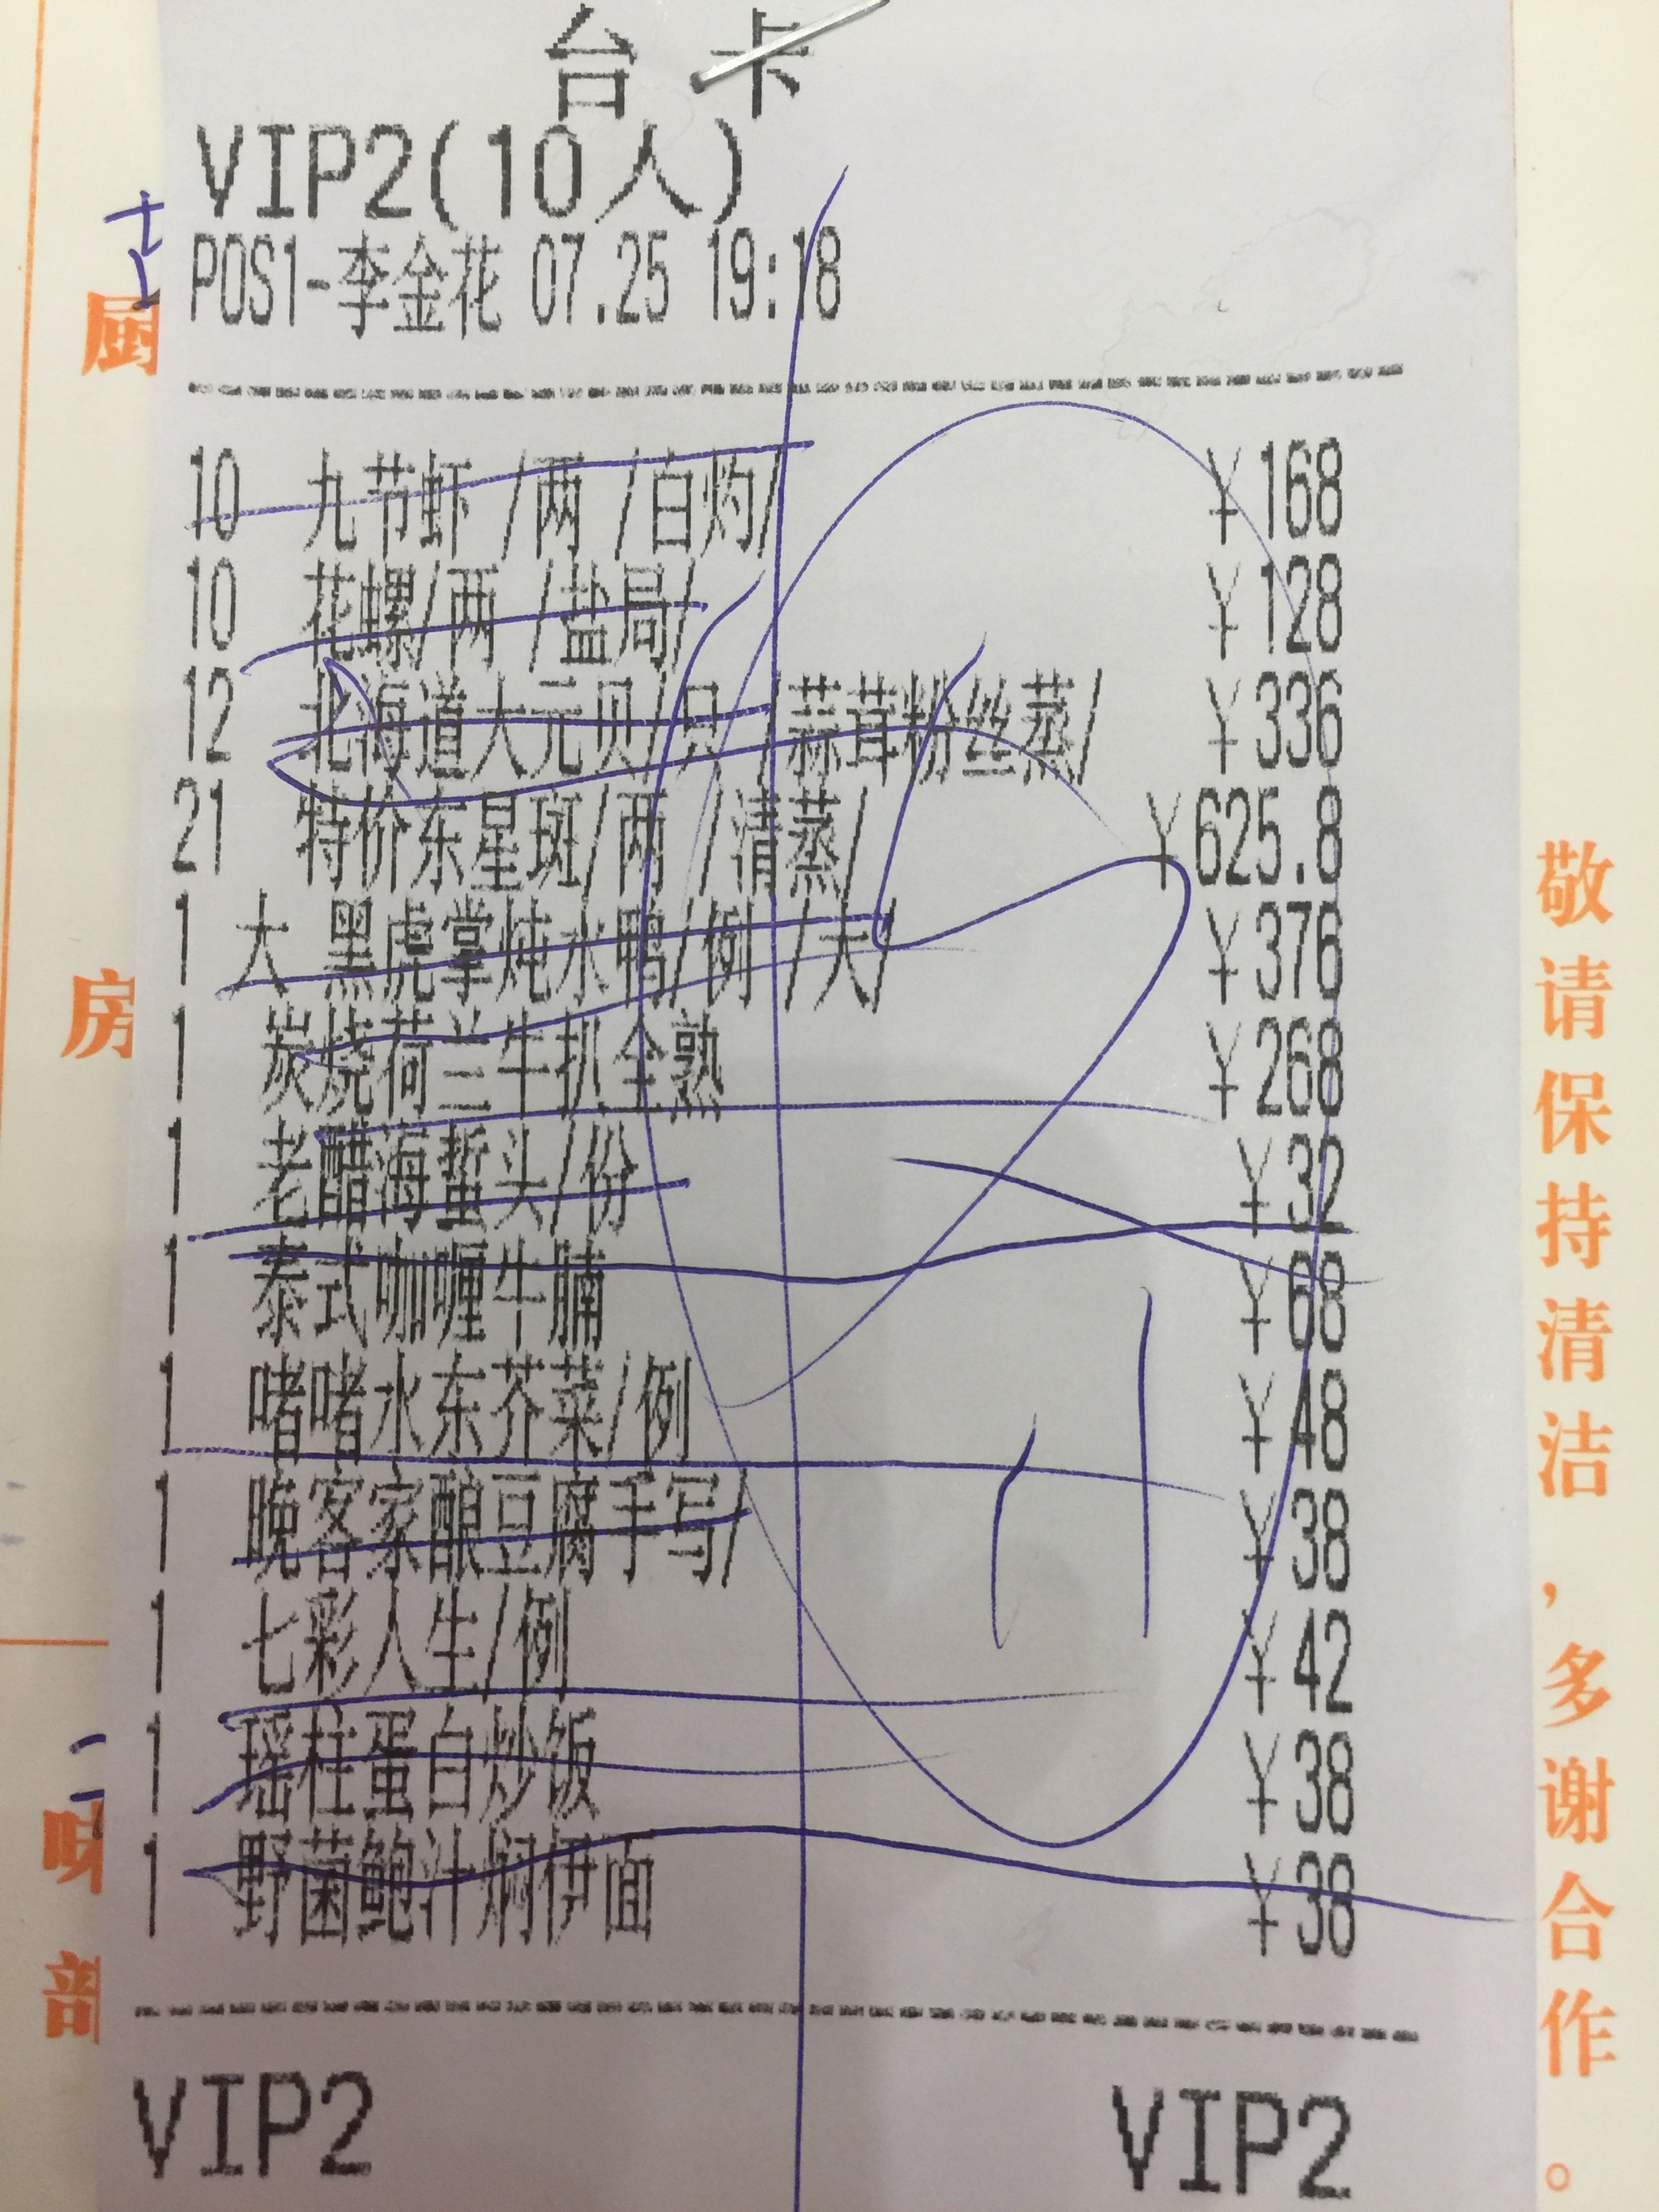 台卡
VIP2(10人)
POS1-李金花 07.25 19:18
10 九节虾 /两 /白灼/ ¥168
10 花螺/两 /盐局/ ¥128
12 北海道大元贝/只 /蒜茸粉丝蒸/ ¥336
21 特价东星斑/两 /清蒸/ ¥625.8
1 大 黑虎掌炖水鸭/例 /大/ ¥376
1 炭烧荷兰牛扒全熟 ¥268
1 老醋海蜇头/份 ¥32
1 泰式咖喱牛腩 ¥68
1 啫啫水东芥菜/例 ¥48
1 晚客家酿豆腐手写/ ¥38
1 七彩人生/例 ¥42
1 瑶柱蛋白炒饭 ¥38
1 野菌鲍汁焖伊面 ¥38
VIP2 VIP2
厨
房
味
部
敬请保持清洁，多谢合作。